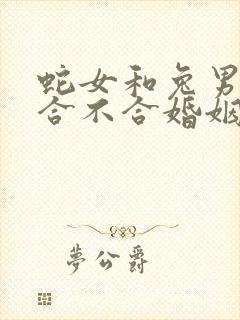 蛇女和兔男
合不合婚姻
夢公爵